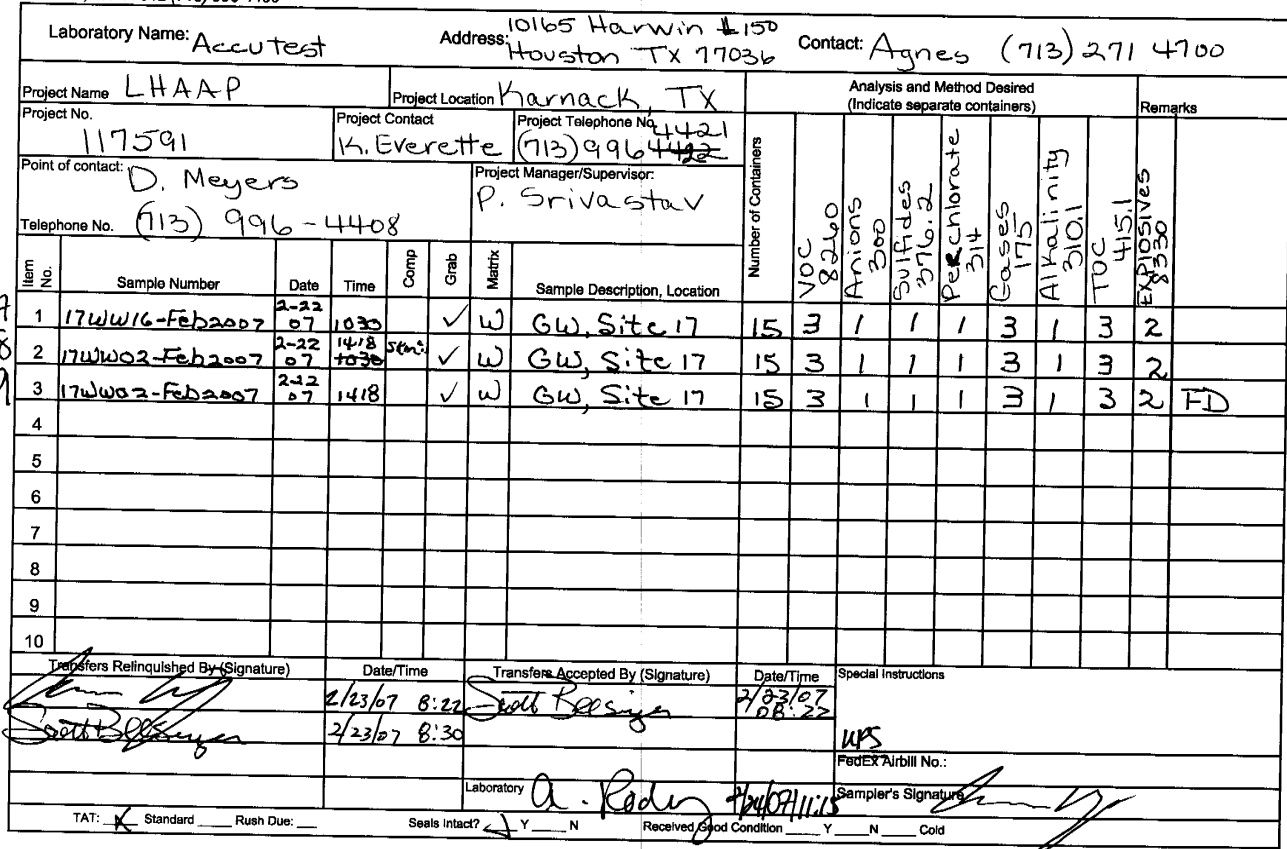 Laboratory Name: Accutest Address: 10165 Harwin #150 Houston TX 77036 Contact: Agnes (713) 271 4700
Project Name LHAAP Project Location Karnack, TX Analysis and Method Desired (Indicate separate containers) Remarks
Project No. 117591 Project Contact K. Everette Project Telephone No. (713) 996 4421 4422
Point of contact: D. Meyers Project Manager/Supervisor: P. Srivastav
Telephone No. (713) 996-4408
Item No. Sample Number Date Time Comp Grab Matrix Sample Description, Location Number of Containers VOC 8260 Anions 300 Sulfides 376.2 Perchlorate 314 Gases 175 Alkalinity 310.1 TOC 415.1 Explosives 8330
1 17WW16-Feb2007 2-22 07 1030 ✓ W GW, Site 17 15 3 1 1 1 3 1 3 2
2 17WW02-Feb2007 2-22 07 1418 1030 ✓ W GW, Site 17 15 3 1 1 1 3 1 3 2
3 17WW02-Feb2007 2-22 07 1418 ✓ W GW, Site 17 15 3 1 1 1 3 1 3 2 FD
4
5
6
7
8
9
10
Transfers Relinquished By (Signature) Date/Time Transfers Accepted By (Signature) Date/Time Special Instructions
2/23/07 8:22 Scott 2/23/07 08:22
Scott 2/23/07 8:30 UPS
FedEx Airbill No.:
Laboratory 2/24/07/11:15 Sampler's Signature
TAT: X Standard ____ Rush Due: __ Seals Intact? ✓ Y ____ N Received Good Condition ____ Y ____ N ____ Cold